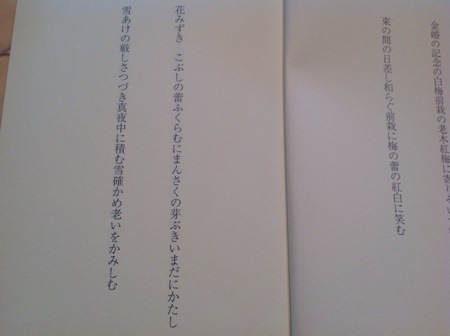 金婚の記念の白梅前栽の老木紅梅に寄り
束の間の日差し和らぐ前栽に梅の蕾の紅白に笑む
花みずき　こぶしの蕾ふくらむにまんさくの芽ぶきいまだにかたし
雪あけの厳しさつづき真夜中に積む雪確かめ老いをかみしむ